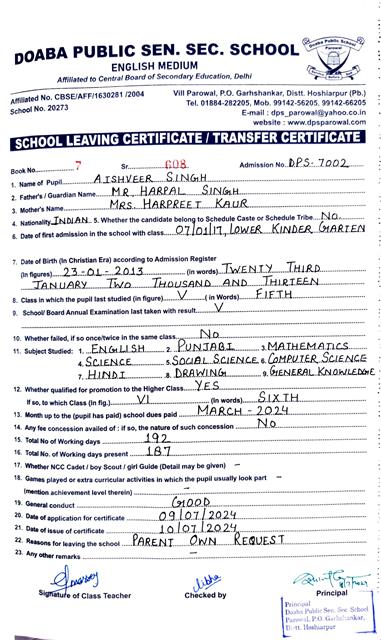 DOABA PUBLIC SEN. SEC. SCHOOL
ENGLISH MEDIUM
Affiliated to Central Board of Secondary Education, Delhi
Affiliated No. CBSE/AFF/1630281 /2004
School No. 20273
Vill Parowal, P.O. Garhshankar, Distt. Hoshiarpur (Pb.)
Tel. 01884-282205, Mob. 99142-56205, 99142-66205
E-mail : dps_parowal@yahoo.co.in
website : www.dpsparowal.com
SCHOOL LEAVING CERTIFICATE / TRANSFER CERTIFICATE
Book No. 7 Sr. 608 Admission No. DPS-7002
1. Name of Pupil AISHVEER SINGH
2. Father's / Guardian Name MR. HARPAL SINGH
3. Mother's Name MRS. HARPREET KAUR
4. Nationality INDIAN 5. Whether the candidate belong to Schedule Caste or Schedule Tribe No.
6. Date of first admission in the school with class 07/01/17, LOWER KINDER GARTEN
7. Date of Birth (In Christian Era) according to Admission Register
(In figures) 23-01-2013 (in words) TWENTY THIRD
JANUARY TWO THOUSAND AND THIRTEEN
8. Class in which the pupil last studied (in figure) V (In Words) FIFTH
9. School/ Board Annual Examination last taken with result V
10. Whether failed, if so once/twice in the same class No
11. Subject Studied : 1. ENGLISH 2. PUNJABI 3. MATHEMATICS
4. SCIENCE 5. SOCIAL SCIENCE 6. COMPUTER SCIENCE
7. HINDI 8. DRAWING 9. GENERAL KNOWLEDGE
12. Whether qualified for promotion to the Higher Class YES
If so, to which Class (In fig.) VI (In words) SIXTH
13. Month up to the (pupil has paid) school dues paid MARCH-2024
14. Any fee concession availed of : if so, the nature of such concession No
15. Total No of Working days 192
16. Total No. of Working days present 187
17. Whether NCC Cadet / boy Scout / girl Guide (Detail may be given) -
18. Games played or extra curricular activities in which the pupil usually look part -
(mention achievement level therein)
19. General conduct GOOD
20. Date of application for certificate 09/07/2024
21. Date of issue of certificate 10/07/2024
22. Reasons for leaving the school PARENT OWN REQUEST
23. Any other remarks -
Signature of Class Teacher Checked by Principal
Principal
Doaba Public Sen. Sec. School
Parowal, P.O. Garhshankar,
Distt. Hoshiarpur